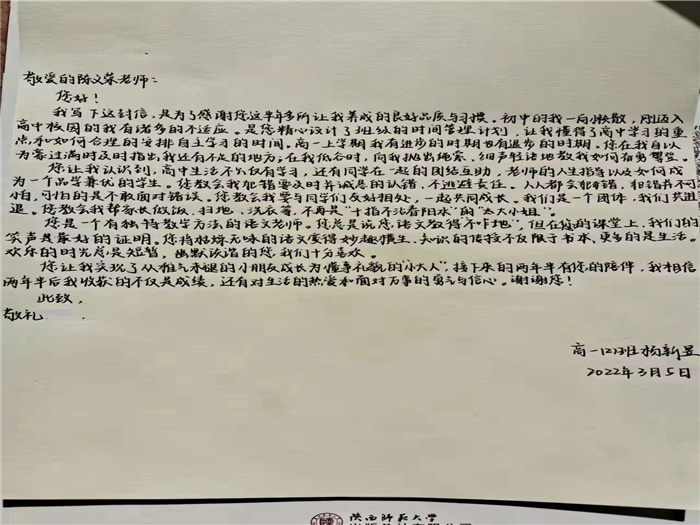 敬爱的陈文荣老师：
您好！
我写下这封信，是为了感谢您这半年多所让我养成的良好品质与习惯。初中的我一向懒散，刚迈入
高中校园的我有诸多的不适应。是您精心设计了班级的时间管理计划，让我懂得了高中学习的重
点和如何合理的安排自主学习的时间。高一上学期我有进步的时期也有退步的时期。您在我自以
为骄过满时及时指出我还有不足的地方；在我低谷时，向我抛出绳索，细声轻语地教我如何奋勇攀登。
您让我认识到，高中生活不仅仅有学习，还有同学在一起的团结互助，老师的人生指导以及如何成
为一个品学兼优的学生。您教会我犯错要及时并诚恳的认错，不逃避责任。人人都会犯错，犯错并不可
怕，可怕的是不敢面对错误。您教会我要与同学们友好相处，一起共同成长。我们是一个团体，我们共进
退。您教会我帮家长做饭、扫地、洗衣等，不再是“十指不沾春阳水”的“大小姐”。
您是一个有独特教学方法的语文老师。您总是说“您语文教得不咋地”，但在您的课堂上，我们的
笑声是最好的证明。您将枯燥无味的语文变得妙趣横生，知识的传授不仅限于书本，更多的是生活。
欢乐的时光总是短暂，幽默诙谐的您，我们十分喜欢。
您让我实现了从稚气未褪的小朋友成长为懂事礼貌的“小大人”，接下来的两年半有您的陪伴，我相信
两年半后我收获的不仅是成绩，还有对生活的热爱和面对万事的勇气与信心。谢谢您！
此致，
敬礼
高一（2）班杨新昱
2022年3月5日
陕西师范大学